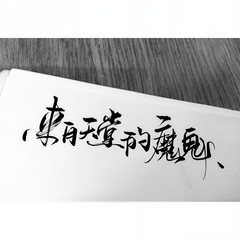 来自天堂的魔鬼